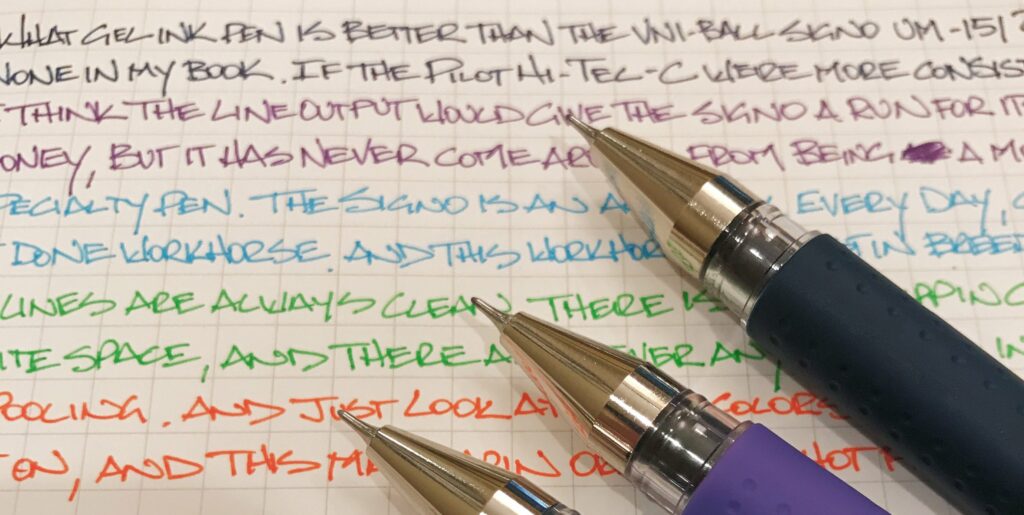 WHAT GEL INK PEN IS BETTER THAN THE UNI-BALL SIGNO UM-151?
NONE IN MY BOOK. IF THE PILOT HI-TEC-C WERE MORE CONSIS
THINK THE LINE OUTPUT WOULD GIVE THE SIGNO A RUN FOR IT
ONEY, BUT IT HAS NEVER COME AR FROM BEING A M
PECIALTY PEN. THE SIGNO IS AN EVERY DAY,
DONE WORKHORSE. AND THIS WORKHOR IN BREE
LINES ARE ALWAYS CLEAN THERE IS PPING
ITE SPACE, AND THERE A EVER AN IN
POOLING. AND JUST LOOK AT COLORS
ON, AND THIS MA HOT